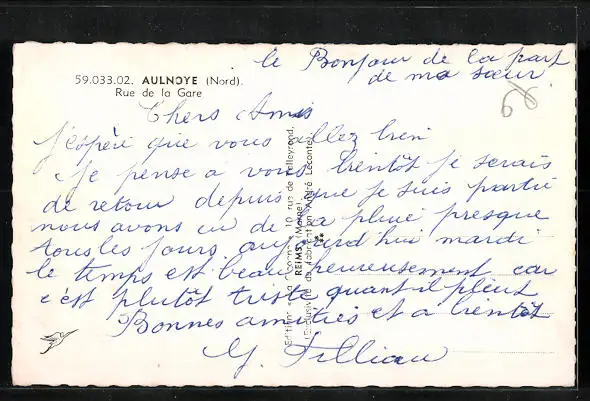 le Bonjour de la part
de ma sœur
59.033.02. AULNOYE (Nord).
Rue de la Gare
Chers Amis
j'espère que vous allez bien
Je pense a vous bientôt je serais
de retour depuis que je suis partie
nous avons eu de la pluie presque
tous les jours aujourd'hui mardi
le temps est beau heureusement car
c'est plutôt triste quant-il pleut
Bonnes amitiés et a bientôt
Y. Filliau
10 rue de Talleyrand,
REIMS (Marne)
Exclusivité de fabrication André Leconte